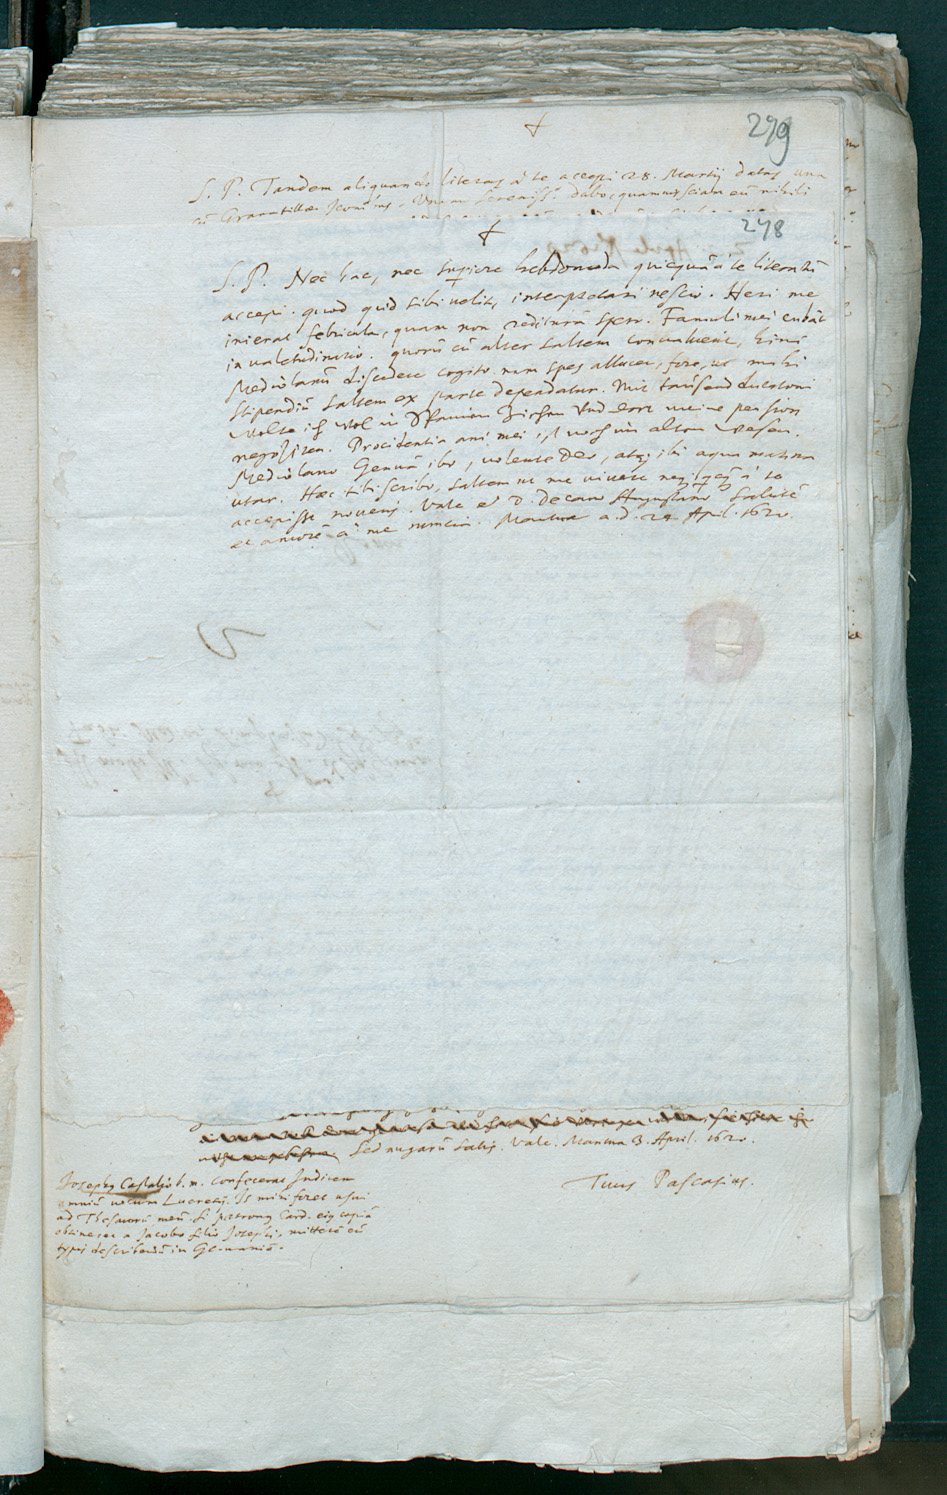 299
S. P. Tandem aliquando literas à te accepi 28. Martij datas una
278
S. P. Nec hac, nec superiore hebdomada quicquā a te literarū
accepi. quod quid sibi velit, interpretari nescio. Heri me
inierat febricula, quam non rediturā spero. Famuli mei cubāt
in valetudinario. quorū cū alter saltem convaluerit, hinc
Mediolanū discedere cogito. nam spes allucet, fore, ut mihi
stipendiū saltem ex parte dependatur. Mit tausend ducatoni
wolte ich wol in Spanien ziehen Vnd dort meine pension
negotziren. Procidentia ani mei ist noch im alten wesen.
Mediolano Genuā ibo, volente Deo, atq; ibi aqua marina
utar. Haec tibi scribo, saltem ut me vivere nec qcq̄ā à te
accepisse noveris. Vale et D. Decano Augustano salutē
et amorē à me nuncia. Mantua a.d. 24 April. 1620.
Sed nugarū satis. Vale. Mantua 3. April. 1620.
Tuus Pascasius.
Josephus Castalio b. m. confecerat Indicem
omniū vocum Lucretij. Is mihi foret usui
ad Thesaurū meū. si patronus Card. eius copiā
obtineret a Jacobo filio Josephi, mitterē eū
typis describendū in Germaniā.